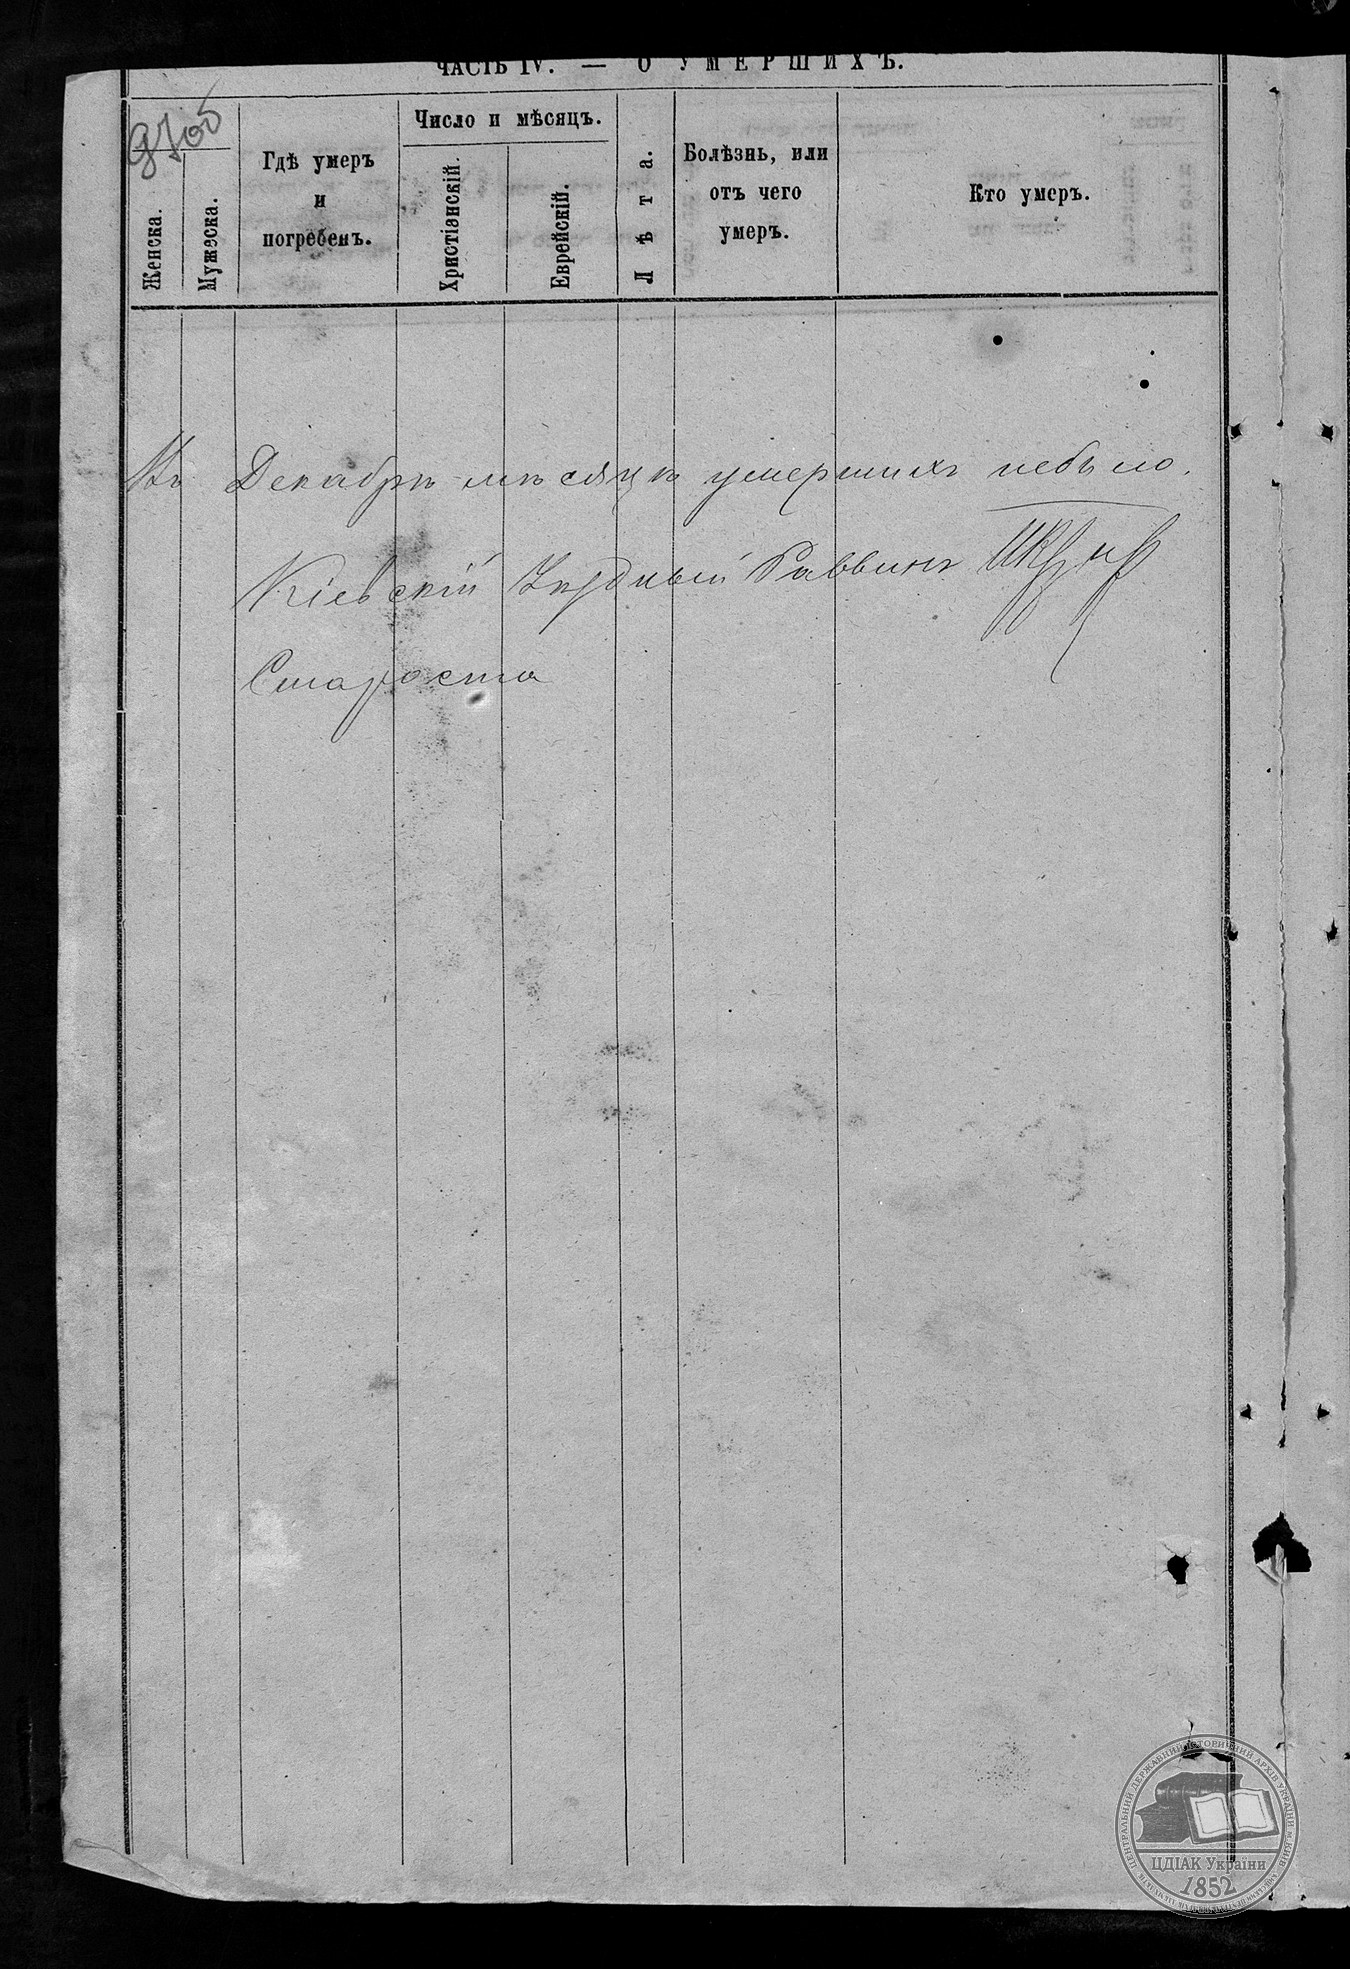 ЧАСТЬ IV. — О УМЕРШИХЪ.
Женска.
Мужеска.
Гдѣ умеръ
и
погребенъ.
Число и мѣсяцъ.
Христіанскій.
Еврейскій.
Лѣта.
Болѣзнь, или
отъ чего
умеръ.
Кто умеръ.
Въ Декабрѣ мѣсяцѣ умершихъ небыло.
Кіевскій Уѣздный Раввинъ
Староста
ЦЕНТРАЛЬНИЙ ДЕРЖАВНИЙ ІСТОРИЧНИЙ АРХІВ УКРАЇНИ м. КИЇВ
ЦДІАК України
1852